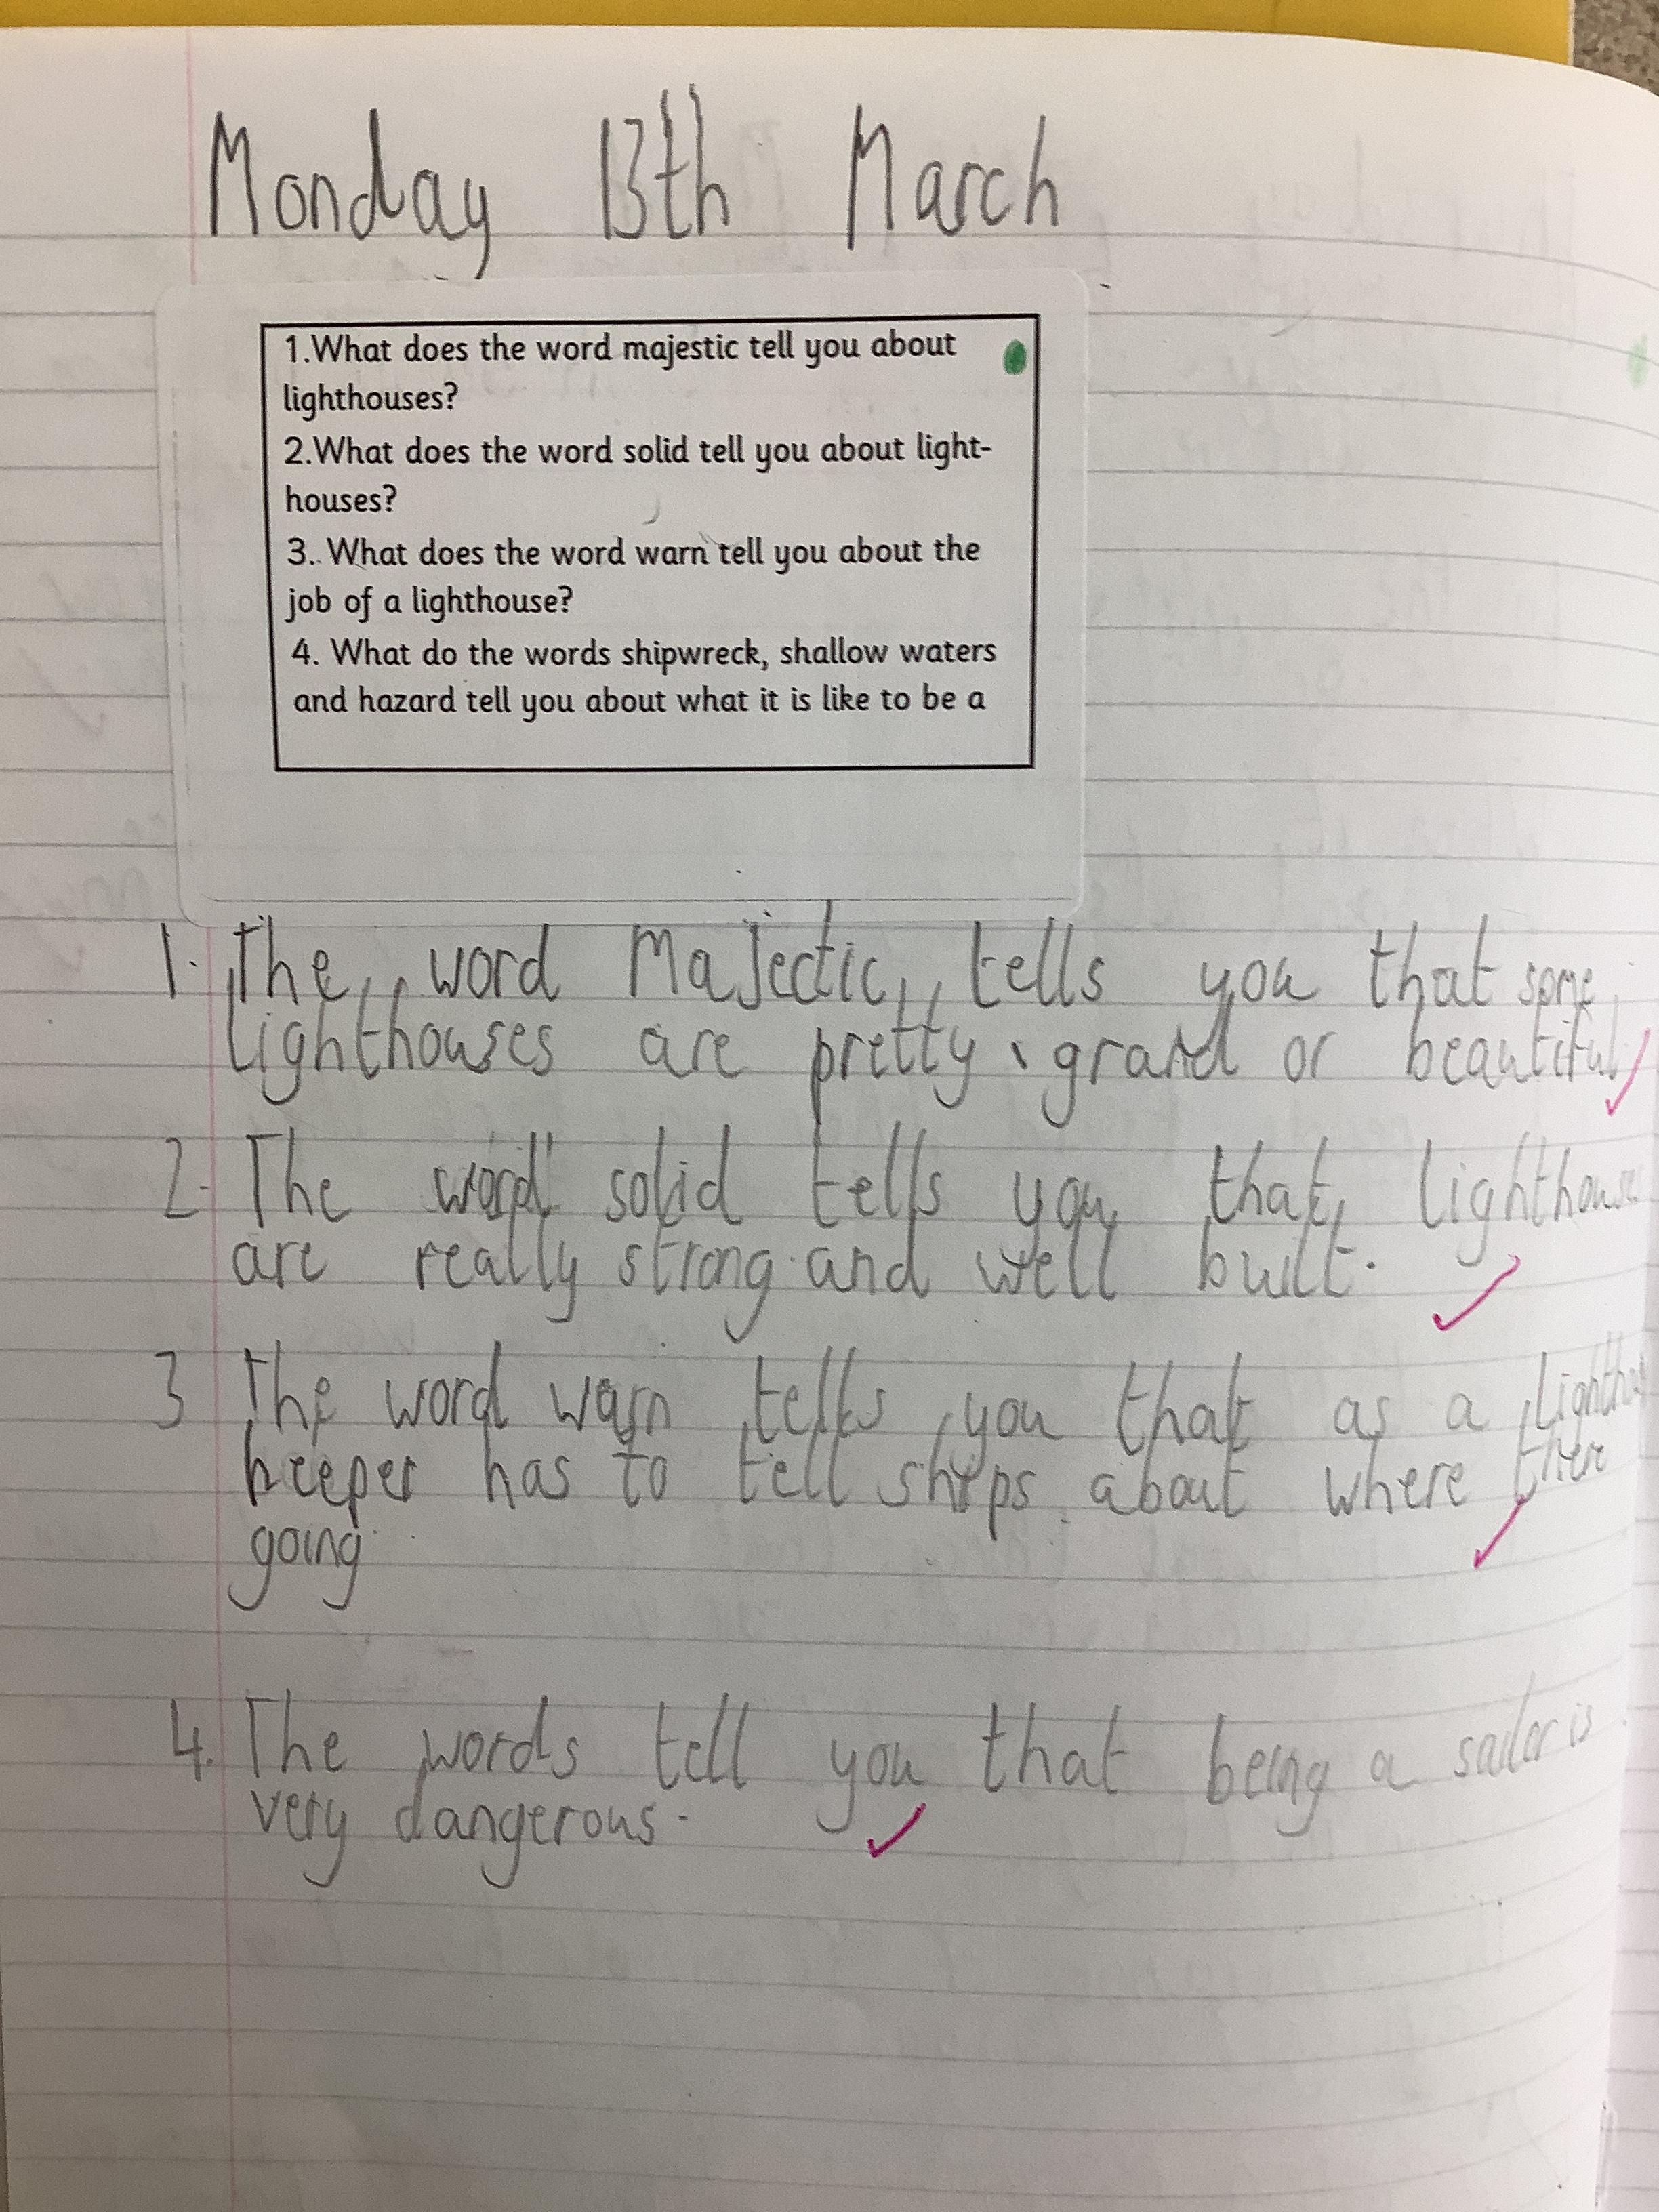 Monday 13th March
1.What does the word majestic tell you about
lighthouses?
2.What does the word solid tell you about light-
houses?
3. What does the word warn tell you about the
job of a lighthouse?
4. What do the words shipwreck, shallow waters
and hazard tell you about what it is like to be a
1. The word Majectic tells you that some
lighthouses are pretty, grand or beautiful
2. The word solid tells you that lighthouses
are really strong and well built.
3 The word warn tells you that as a
keeper has to tell ships about where
going
4. The words tell you that being a sailor is
very dangerous.